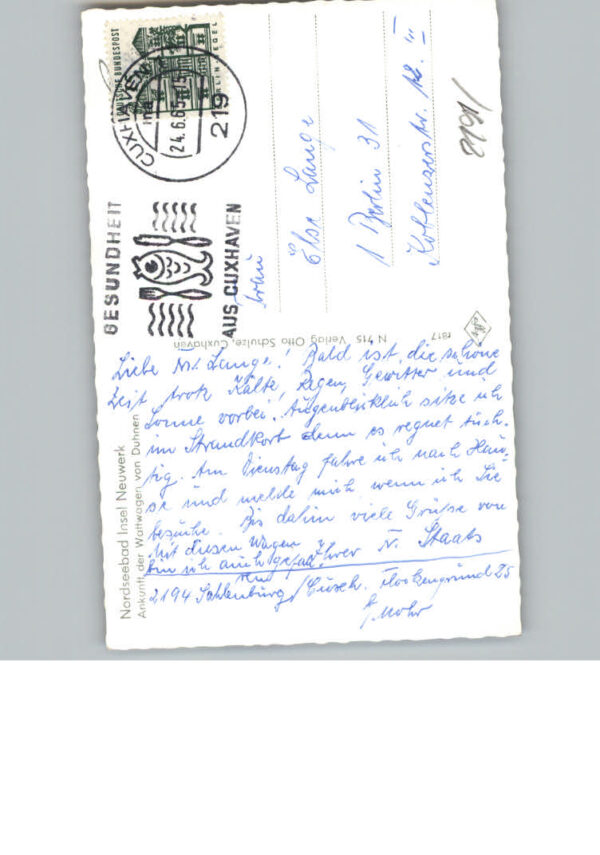 Nordseebad Insel Neuwerk
Ankunft der Wattwagen von Duhnen
Liebe Fr. Lange! Bald ist die schöne
Zeit trotz Kälte, Regen, Gewitter und
Sonne vorbei. Augenblicklich sitze ich
im Strandkorb denn es regnet tüch-
tig. Am Dienstag fahre ich nach Hau-
se und melde mich, wenn ich Sie
besuche. Bis dahin viele Grüße von
Ihrer N. Staats
Mit diesen Wagen
bin ich auch gefah-
ren
2194 Sahlenburg/Cuxh. Flockengrund 25
b/Mohr
N 715 Verlag Otto Schulze, Cuxhaven
r817
GESUNDHEIT
AUS CUXHAVEN
CUXHAVEN
24.6.65
219
DEUTSCHE BUNDESPOST
BERLIN TEGEL
Frau
Else Lange
1 Berlin 31
Koblenzerstr. 12 III